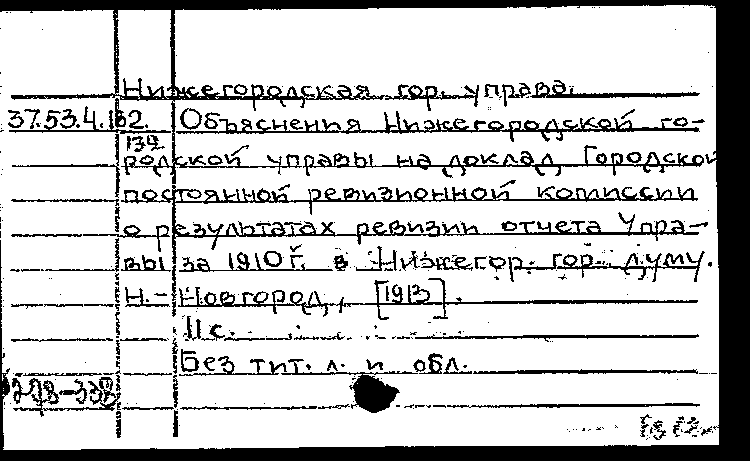 Нижегородская гор. управа.
37.53.4.162. Объяснения Нижегородской го-
139
родской управы на доклад Городской
постоянной ревизионной комиссии
о результатах ревизии отчета Упра-
вы за 1910 г. в Нижегор. гор. думу.
Н.-Новгород, [1913].
11 с.
Без тит. л. и обл.